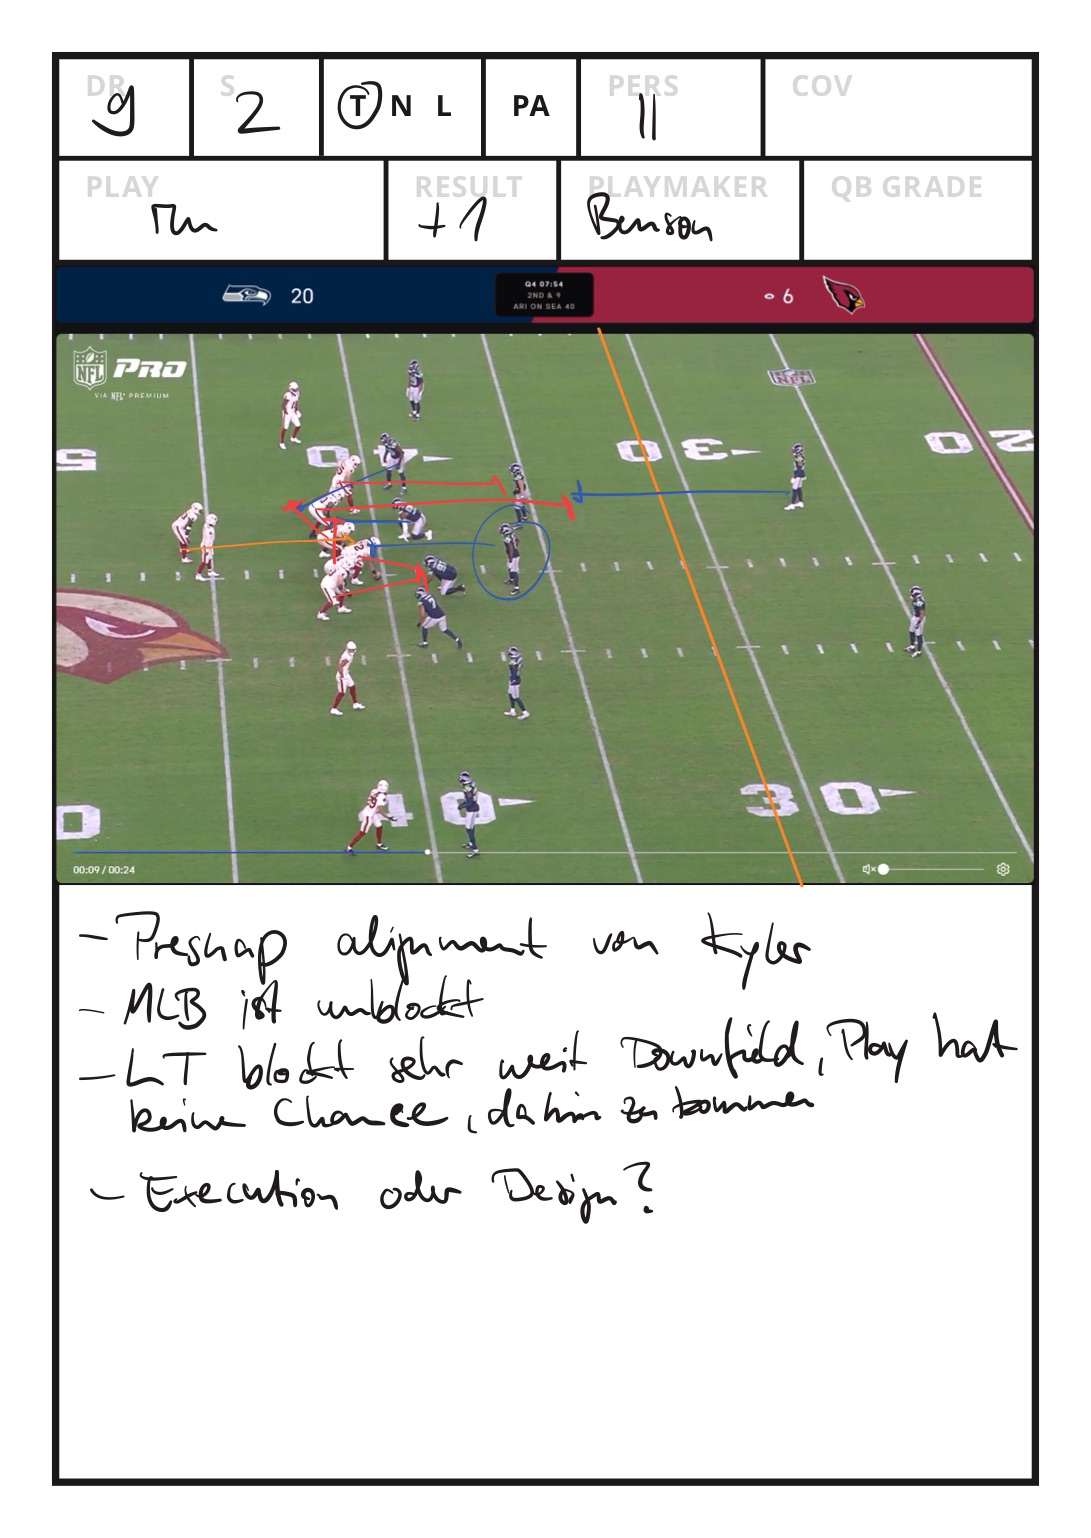 DR 9
S 2
T N L
PA
PERS 11
COV
PLAY run
RESULT +1
PLAYMAKER Benson
QB GRADE
20
Q4 07:54
2ND & 9
ARI ON SEA 40
6
NFL PRO
VIA NFL+ PREMIUM
NFL
5 40 30 20
0 40 30
00:09 / 00:24
- Presnap alignment von Kyler
- MLB ist unblockt
- LT blockt sehr weit Downfield, Play hat
keine Chance, dahin zu kommen
- Execution oder Design?